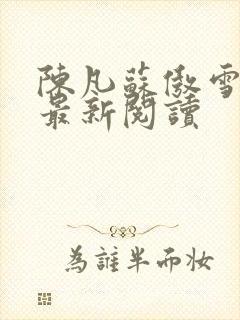 陳凡蘇傲雪
最新閱讀
為誰半面妝